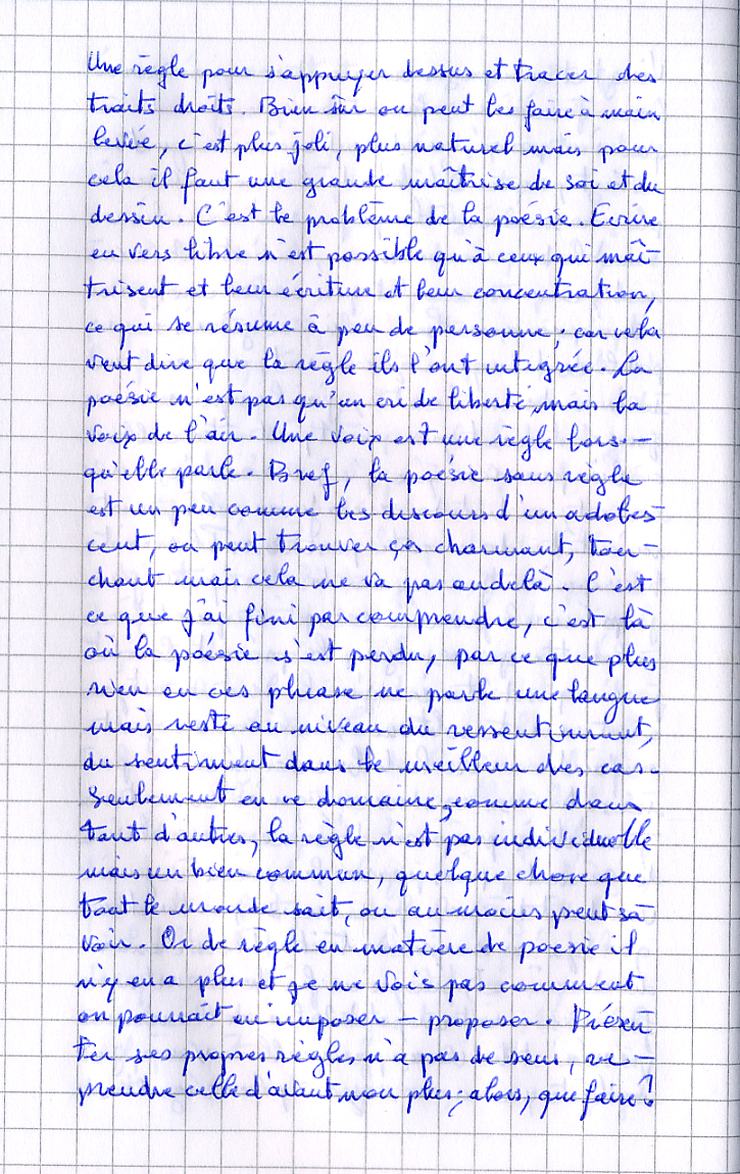 Une règle pour s'appuyer dessus et tracer des
traits droits. Bien sûr on peut les faire à main
levée, c'est plus joli, plus naturel mais pour
cela il faut une grande maîtrise de soi et du
dessin. C'est le problème de la poésie. Ecrire
en vers libre n'est possible qu'à ceux qui maî-
trisent et leur écriture et leur concentration,
ce qui se résume à peu de personne, car cela
veut dire que la règle ils l'ont integrée. La
poésie n'est pas qu'un cri de liberté, mais la
voix de l'air. Une voix est une règle lors-
qu'elle parle. Bref, la poésie sans règle
est un peu comme les discours d'un adoles-
cent, on peut trouver ça charmant, tou-
chant mais cela ne va pas au delà. C'est
ce que j'ai fini par comprendre, c'est là
où la poésie s'est perdu, par ce que plus
rien en ces phrase ne parle une langue
mais reste au niveau du ressentiment,
du sentiment dans le meilleur des cas.
Seulement en ce domaine, comme dans
tant d'autres, la règle n'est pas individuelle
mais un bien commun, quelque chose que
tout le monde sait, ou au moins peut sa-
voir. Or de règle en matière de poesie il
n'y en a plus et je ne vois pas comment
on pourrait en imposer – proposer. Présen-
ter ses propres règles n'a pas de sens, re-
prendre celle d'avant non plus, alors, que faire ?